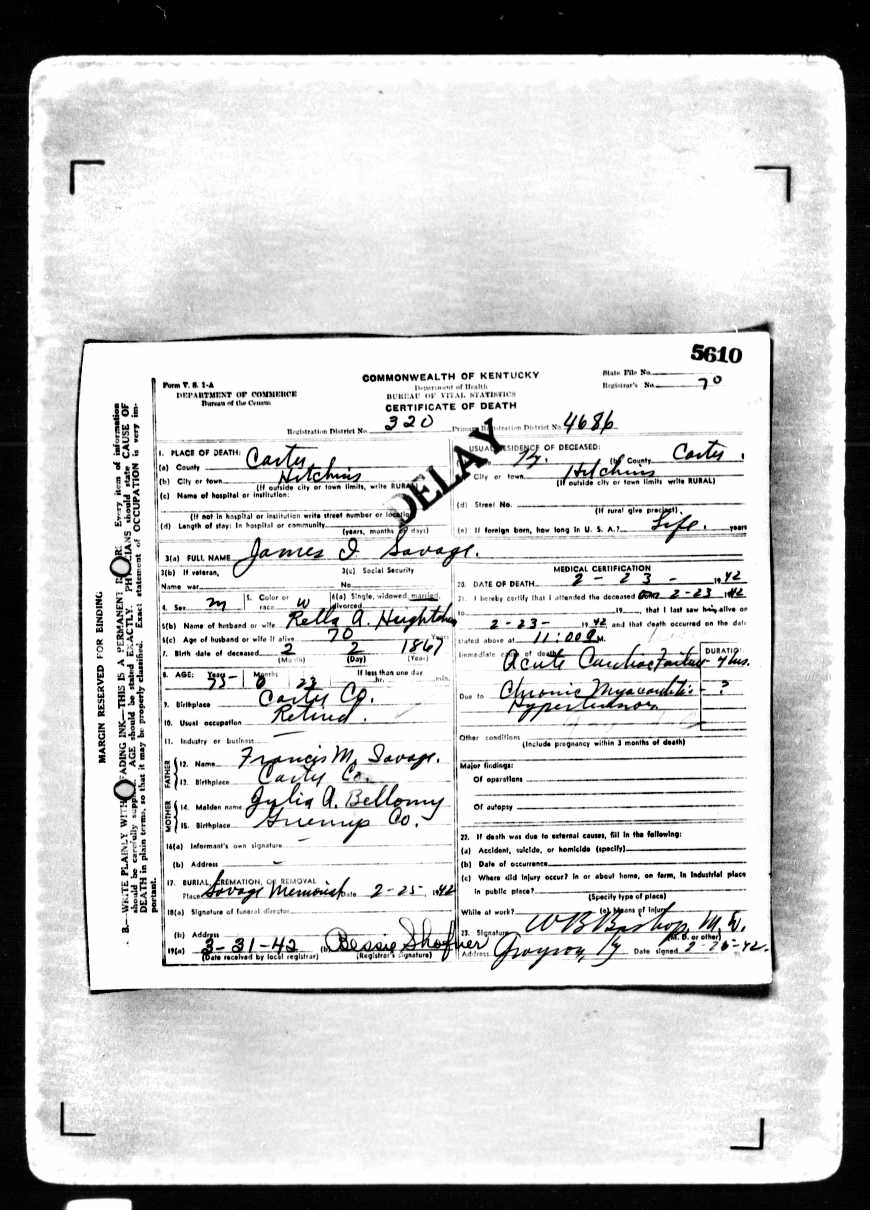 5610
Form V. S. 1-A
DEPARTMENT OF COMMERCE
Bureau of the Census
COMMONWEALTH OF KENTUCKY
Department of Health
BUREAU OF VITAL STATISTICS
CERTIFICATE OF DEATH
State File No.
Registrar's No. 70
Registration District No. 320
Primary Registration District No. 4686
DELAY
MARGIN RESERVED FOR BINDING
B.—WRITE PLAINLY WITH FADING INK—THIS IS A PERMANENT Every item of information
should be carefully AGE should be stated EXACTLY. should state CAUSE OF
DEATH in plain terms, so that it may be properly classified. Exact statement of OCCUPATION is very im-
portant.
1. PLACE OF DEATH:
(a) County Carter
(b) City or town Hitchins
(If outside city or town limits, write RURAL)
(c) Name of hospital or institution:
(If not in hospital or institution write street number or location)
(d) Length of stay: In hospital or community
(years, months or days)
USUAL RESIDENCE OF DECEASED:
Ky. (b) County Carter
City or town Hitchins
(If outside city or town limits, write RURAL)
(d) Street No.
(If rural give precinct)
(e) If foreign born, how long in U. S. A.? Life. years
3(a) FULL NAME James I Savage.
3(b) If veteran,
Name war
3(c) Social Security
No.
4. Sex M
5. Color or race W
6(a) Single, widowed, married, divorced
6(b) Name of husband or wife Rella A.
6(c) Age of husband or wife if alive 70 Years
7. Birth date of deceased 2 2 1867
(Month) (Day) (Year)
8. AGE: Years 75 Months 0 23
If less than one day
hr. min.
9. Birthplace Carter Co.
10. Usual occupation Retired.
11. Industry or business
FATHER
12. Name Francis M. Savage.
13. Birthplace Carter Co.
MOTHER
14. Maiden name Julia A. Bellomy
15. Birthplace Greenup Co.
16(a) Informant's own signature
(b) Address
17. BURIAL, CREMATION, OR REMOVAL
Place Savage Memorial Date 2-25- 1942
18(a) Signature of funeral director
(b) Address
19(a) 3-31-42 (b) Bessie Shofner
(Date received by local registrar) (Registrar's Signature)
MEDICAL CERTIFICATION
20. DATE OF DEATH 2-23- 1942
21. I hereby certify that I attended the deceased 2-23 1942
to 19 , that I last saw him alive on
2-23- 1942 and that death occurred on the date
stated above at 11:00 M.
Immediate cause of death
DURATION
Acute Cardiac Failure 4 hrs.
Due to Chronic Myocarditis - ?
Hypertension
Other conditions
(Include pregnancy within 3 months of death)
Major findings:
Of operations
Of autopsy
22. If death was due to external causes, fill in the following:
(a) Accident, suicide, or homicide (specify)
(b) Date of occurrence
(c) Where did injury occur? In or about home, on farm, in industrial place
in public place?
(Specify type of place)
While at work? (e) Means of injury
23. Signature W B M. D.
(M. D. or other)
Address Grayson, Ky Date signed 2-25-42.